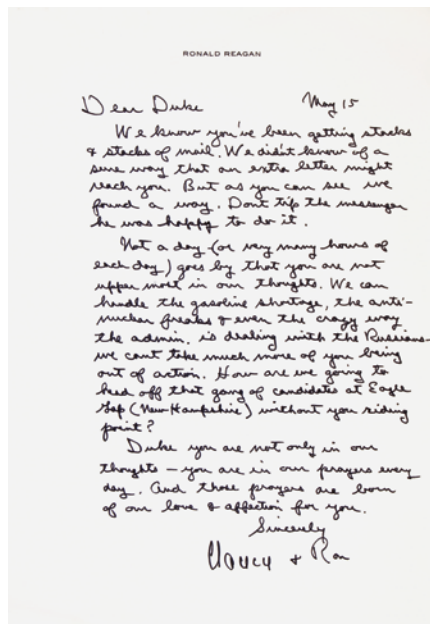 RONALD REAGAN
Dear Duke May 15
We know you've been getting stacks
& stacks of mail. We didn't know of a
sure way that an extra letter might
reach you. But as you can see we
found a way. Dont tip the messenger
he was happy to do it.
Not a day (or very many hours of
each day) goes by that you are not
upper most in our thoughts. We can
handle the gasoline shortage, the anti-
nuclear freaks & even the crazy way
the admin. is dealing with the Russians-
we cant take much more of you being
out of action. How are we going to
head off that gang of candidates at Eagle
Gap (New Hampshire) without you riding
point?
Duke you are not only in our
thoughts – you are in our prayers every
day. And those prayers are born
of our love & affection for you.
Sincerely
Nancy & Ron